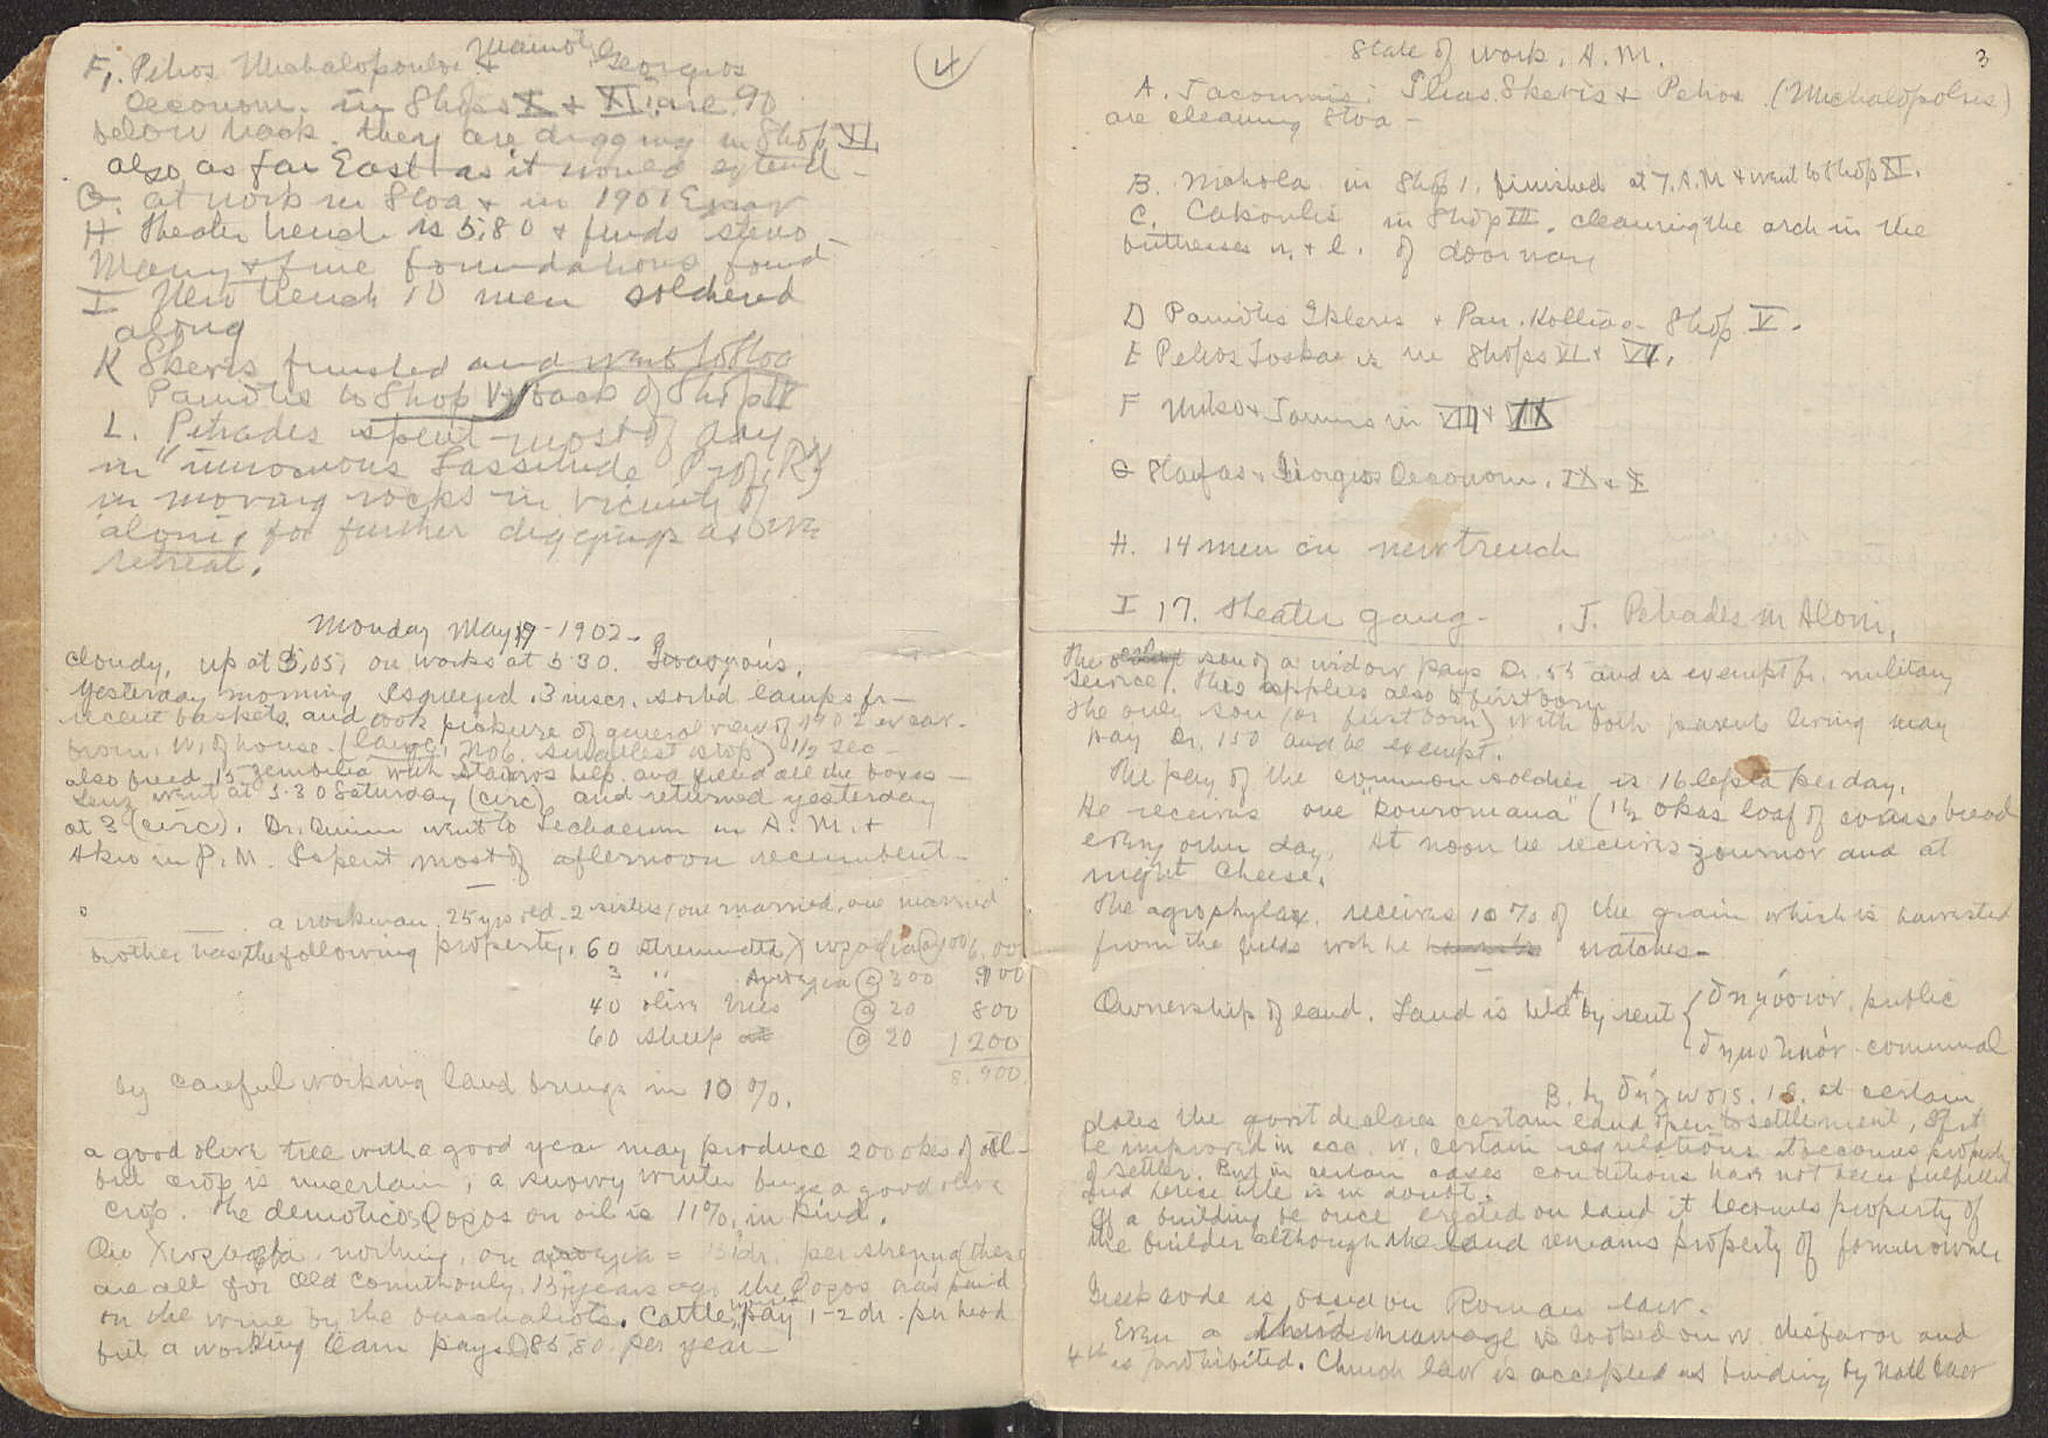 4
F,. Petros Michalopoulos + Mamot, Georgios
Oeconom. in Shops X + XI. are .90
below hook. they are digging in Shop XI.
also as far East as it would extend -
G. at work in Stoa + in 1901 Excav
H Theater trench is 5.80 + finds steno
Many + fine foundations found
I New trench 10 men soldiered
along
K Skeris finished and went to Stoa
Panotis to Shop V + back of Shop IV
L. Petrades spent most of day
in "innocuous Lassitude
in moving rocks in vicinity of
aloni, for further diggings as we
retreat.
Monday May 19 - 1902 -
Cloudy, up at 5,05, on works at 5.30.
Yesterday morning I squeezed .3 inscr. sorted lamps fr -
recent baskets and took picture of general view of 1902 excav.
from W. of house. (large, No 6. smallest stop) 1/2 sec -
also freed 15 zembilia with Stavros help and filled all the boxes -
went at 3.30 Saturday (circ) and returned yesterday
at 3 (circ). Dr. Quinn went to Lechaeum in A. M. +
in P. M. I spent most of afternoon recumbent -
a workman, 25 yrs old. 2 sisters, one married, one married
brother has the following property. 60 stremmata @ 100 6.00
3 " @ 300 900
40 olive trees @ 20 800
60 sheep @ 20 1 200
8.900
by careful working land brings in 10 %.
a good olive tree with a good year may produce 200 okes of oil -
but crop is uncertain, a snowy winter brings a good olive
crop. The demoticos φορος on oil is 11%, in kind.
On nothing, on = dr. per stremma (these
are all for Old Corinth only. 15 years ago the φορος was paid
on the wine by the . Cattle pay 1-2 dr. per head
but a working team pays D 85.80 per year -
3
State of work, A. M.
A. Jacoumis. Skeris + Petros (Michalopolos)
are cleaning Stoa -
B. Mahola in Shop 1. finished at 7. A.M + went to Shop XI.
C. Cakoulis in Shop III. cleaning the arch in the
buttresses n. + e. of doorway
D Panotis Skleris + Pan. Kollias - Shop V.
E Petros Loskas is in Shops VI + VII.
F Mitso + Jannis in VIII + VIIX
G Slavfas + Giorgios Oeconom. IX + X
H. 14 men on new trench
I 17. Theater gang - . J. Petrades in Aloni.
The son of a widow pays Dr. 55 and is exempt fr. military
service. This applies also to first born
The only son (or first born) with both parents living may
pay Dr. 150 and be exempt.
The pay of the common soldier is 16 lepta per day.
He receives one "Kouromana" (1 1/2 okas loaf of coarse bread
every other day. At noon he receives zoumos and at
night cheese.
The agrophylax. receives 10 % of the grain which is harvested
from the fields wch he watches -
Ownership of land. Land is held A by rent { δημόσιον. public
δημοτικόν. communal
B. by δήλωσις. i.e. at certain
dates the govt declares certain land open to settlement, If it
be improved in acc. w. certain regulations it becomes property
of settler. But in certain cases conditions have not been fulfilled
and hence title is in doubt.
If a building be once erected on land it becomes property of
the builder although the land remains property of former owner
Greek code is based on Roman law.
Even a third marriage is looked on w. disfavor and
4th is prohibited. Church law is accepted as binding by Natl law